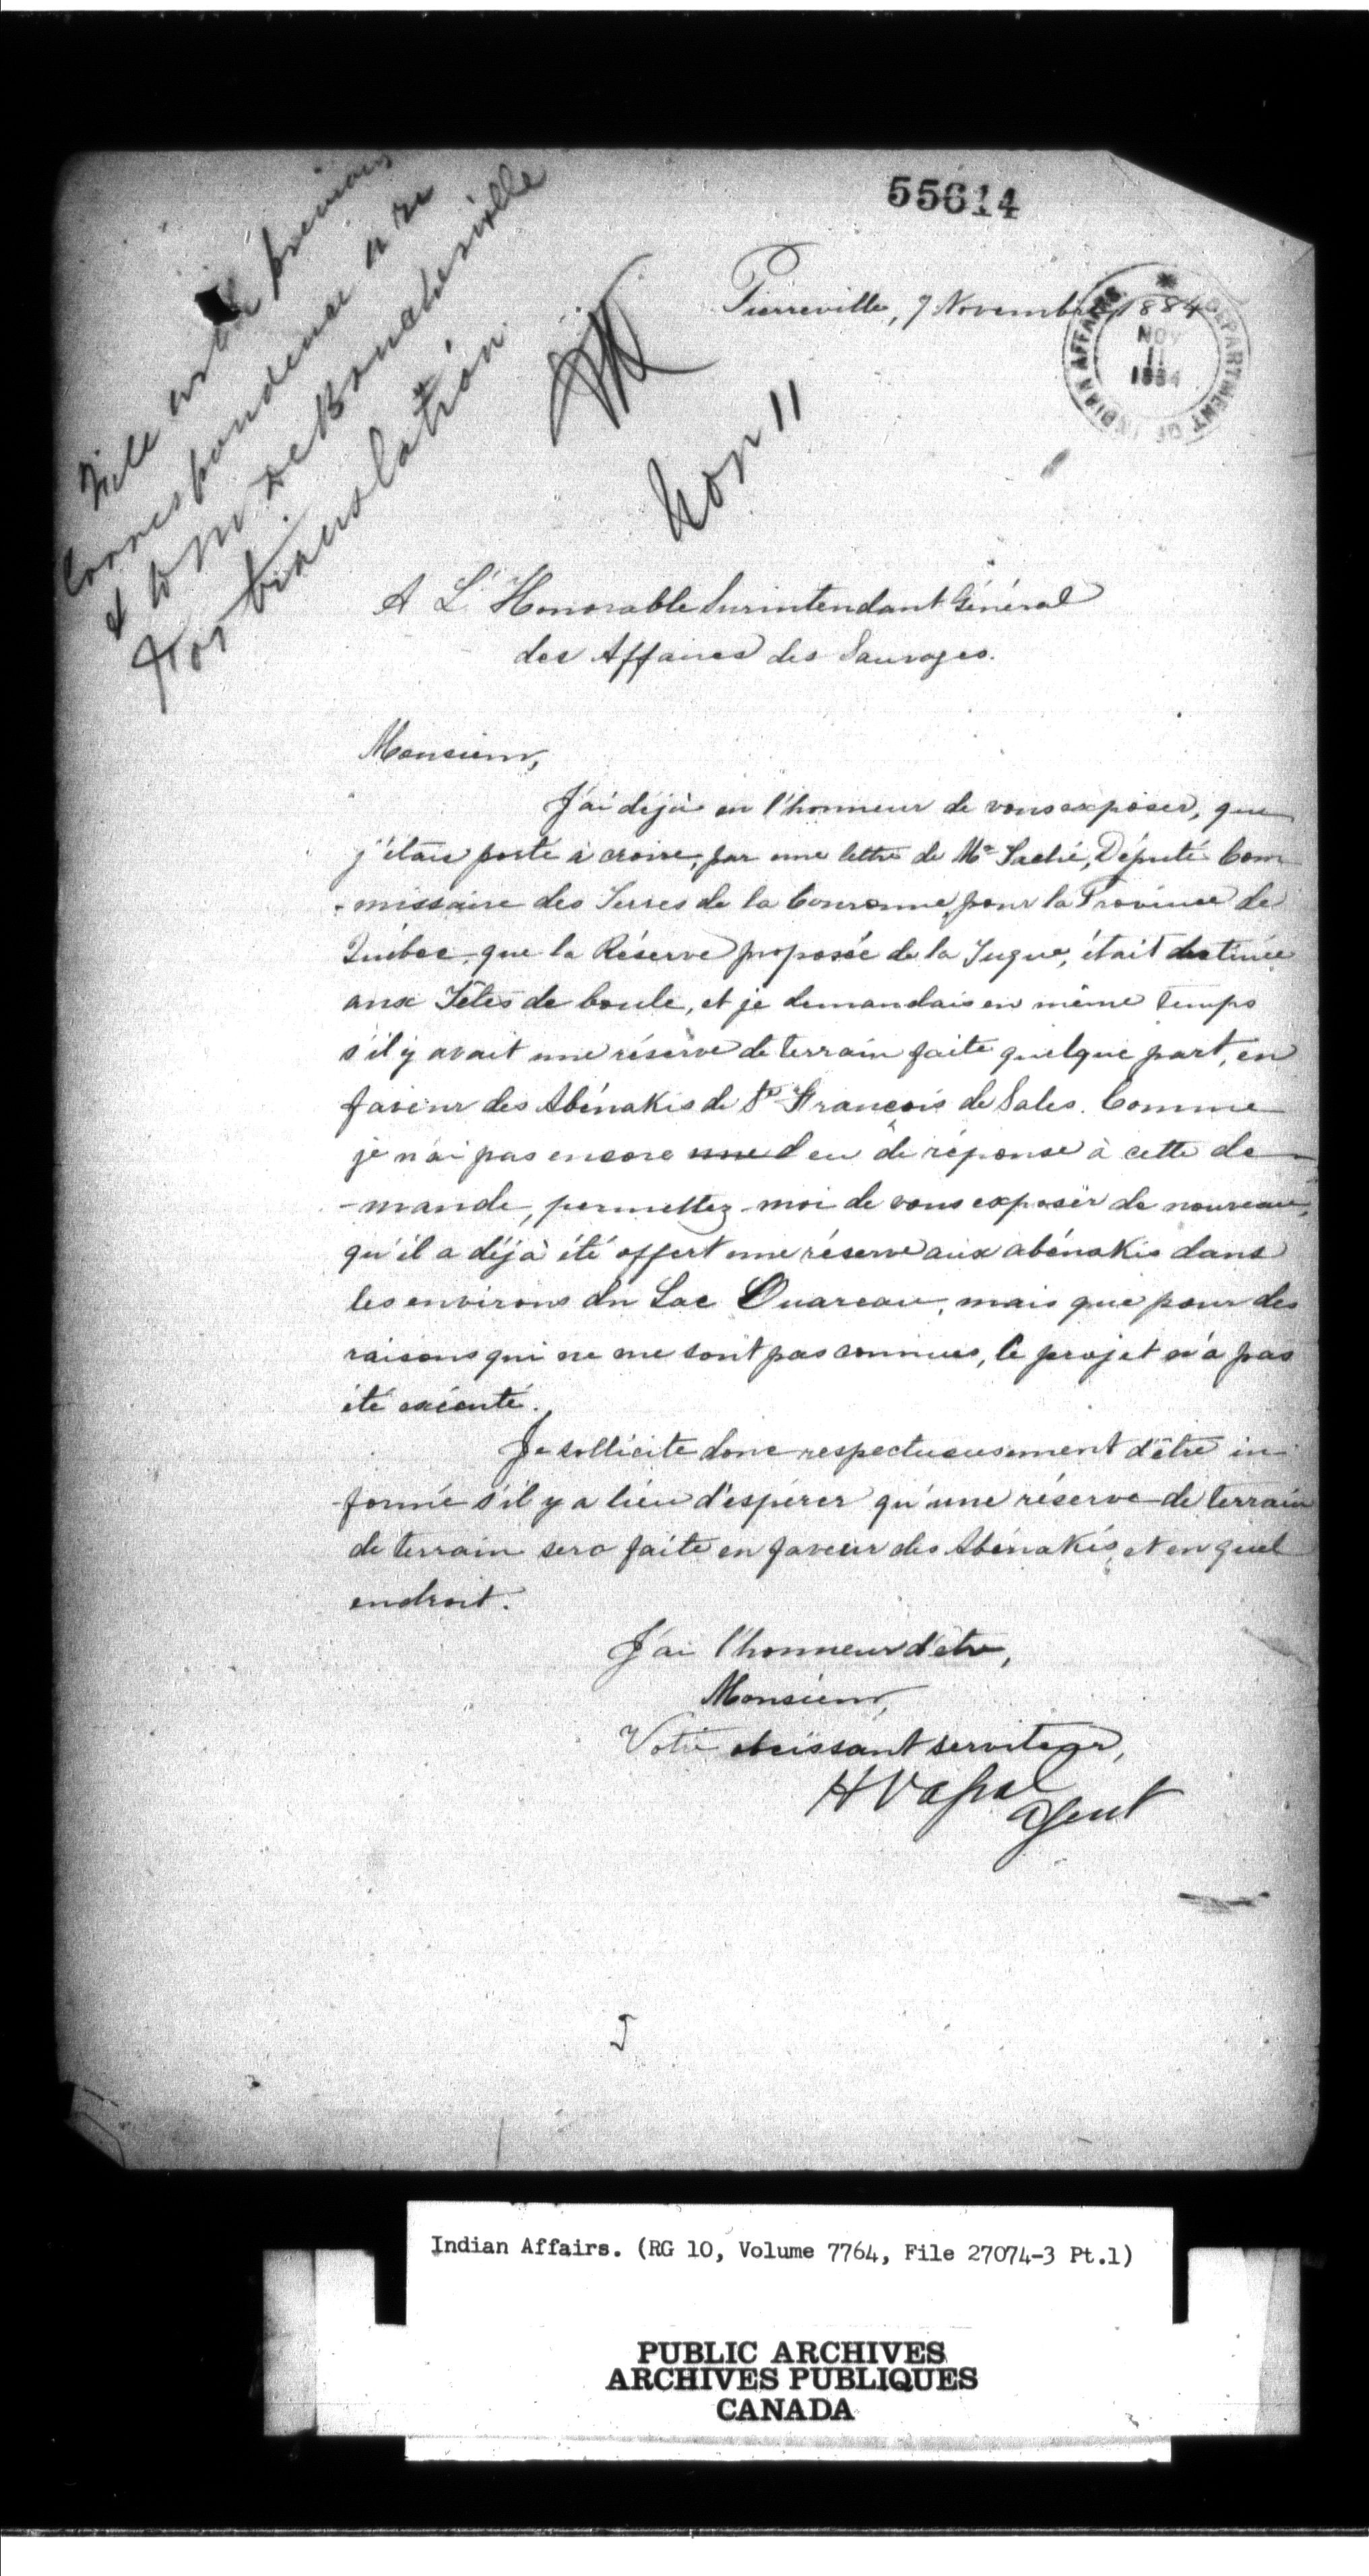 55614
File with previous
correspondence a re
& to Mr DeBoucherville
for translation
Nov 11
Pierreville, 7 Novembre, 1884
DEPARTMENT OF INDIAN AFFAIRS
NOV
11
1884
A L'Honorable Surintendant Général
des Affaires des Sauvages.
Monsieur,
J'ai déjà eu l'honneur de vous exposer, que
j'étais porté à croire, par une lettre de Mr Taché, Député Com
-missaire des Terres de la Couronne pour la Province de
Québec, que la Réserve proposée de la Tuque, était destinée
aux Têtes de boule, et je demandais en même temps
s'il y avait une réserve de terrain faite quelque part, en
faveur des Abénakis de St François de Sales. Comme
je n'ai pas encore eu de réponse à cette de
-mande, permettez-moi de vous exposer de nouveau,
qu'il a déjà été offert une réserve aux abénakis dans
les environs du Lac Ouareau, mais que pour des
raisons qui ne me sont pas connues, le projet n'a pas
été exécuté.
Je sollicite donc respectueusement d'être in
-formé s'il y a lieu d'espérer qu'une réserve de terrain
de terrain sera faite en faveur des Abénakis, et en quel
endroit.
J'ai l'honneur d'être,
Monsieur,
Votre obeissant serviteur,
H Vassal
Agent
Indian Affairs. (RG 10, Volume 7764, File 27074-3 Pt.1)
PUBLIC ARCHIVES
ARCHIVES PUBLIQUES
CANADA